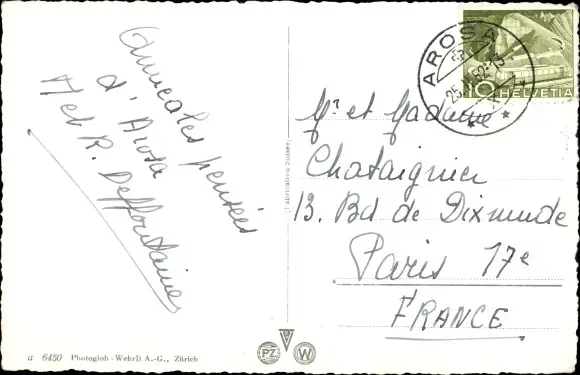 Amicales pensées
d'Arosa
M et R. Deffontaines
AROSA
25. 52-13
10 HELVETIA
Mr et Madame
Chataignier
13. Bd de Dixmude
Paris 17e
FRANCE
Fabrication Suisse
a 6450 Photoglob-Wehrli A.-G., Zürich
PZ W